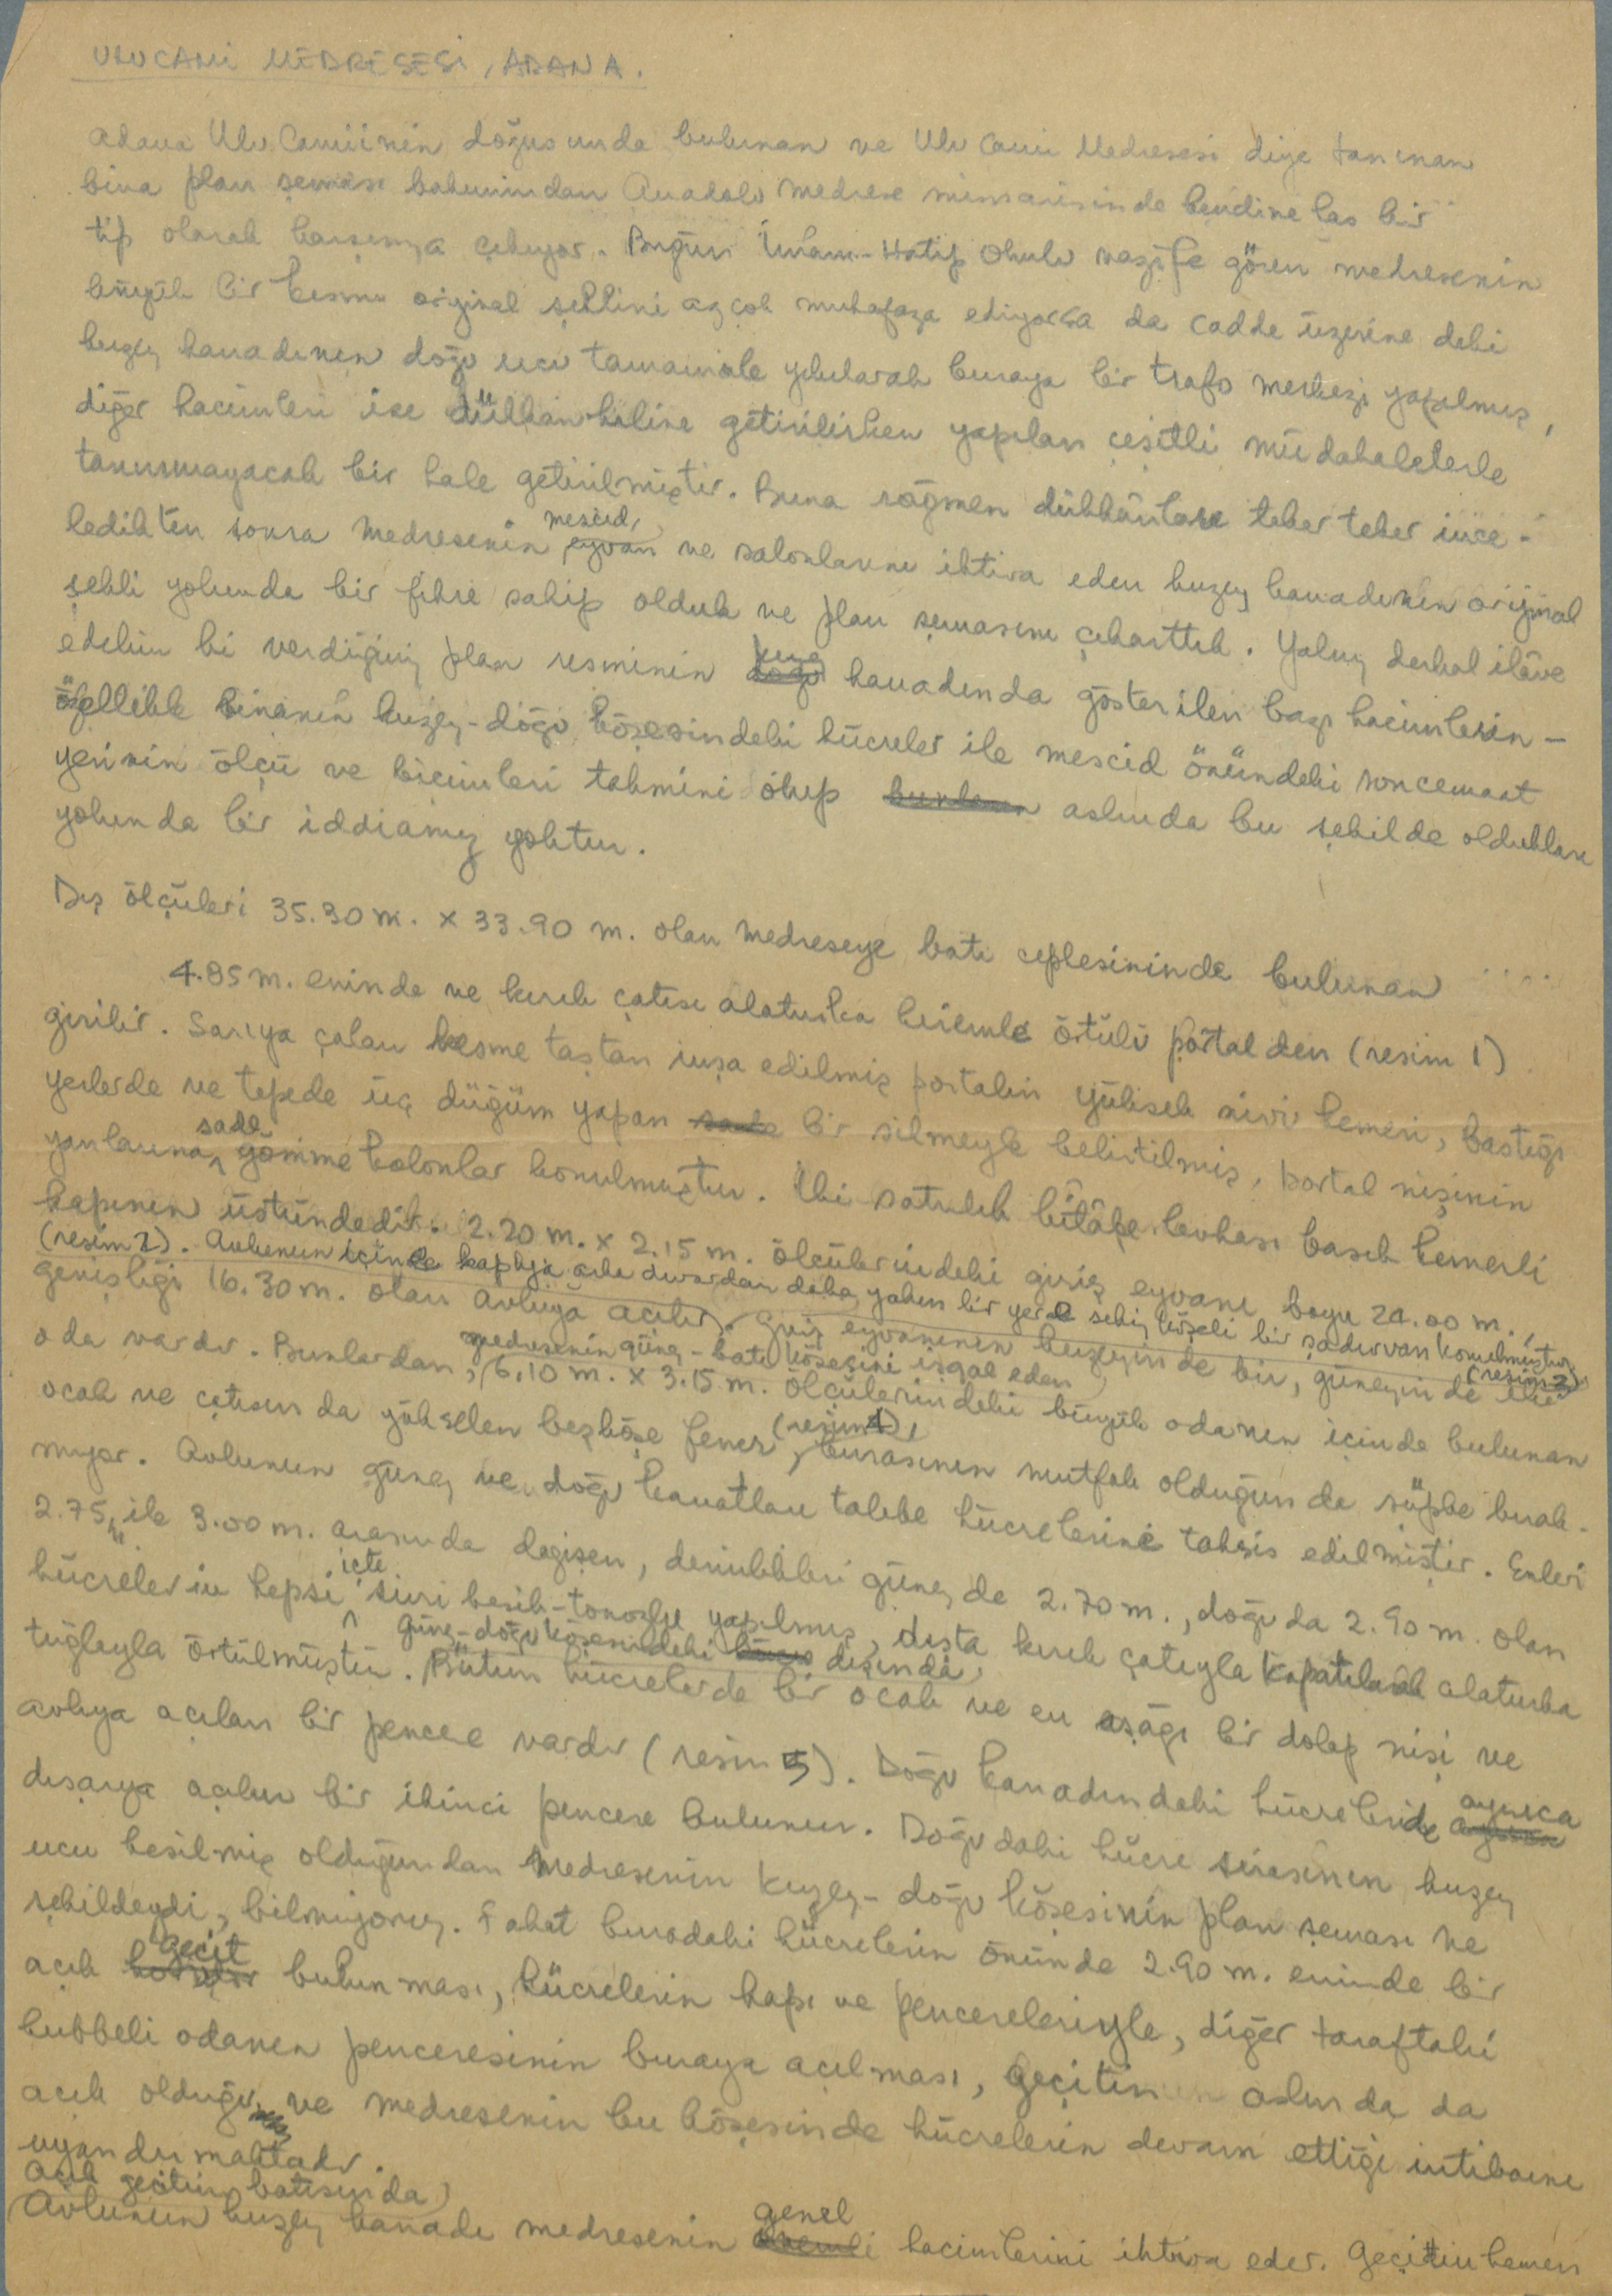 ULUCAMİ MEDRESESİ, ADANA.
Adana Ulu Camiinin doğusunda bulunan ve Ulu Cami Medresesi diye tanınan
bina plan şeması bakımından Anadolu medrese mimarisinde kendine has bir
tip olarak karşımıza çıkıyor. Bugün İmam-Hatip Okulu vazife gören medresenin
büyük bir kısmı orijinal şeklini az çok muhafaza ediyorsa da cadde üzerine deki
kuzey kanadının doğu ucu tamamiyle yıkılarak buraya bir trafo merkezi yapılmış,
diğer hacimleri ise dükkan haline getirilirken yapılan çeşitli müdahalelerle
tanınmayacak bir hale getirilmiştir. Buna rağmen dükkânları teker teker ince-
ledikten sonra medresenin mescid, eyvan ve salonlarını ihtiva eden kuzey kanadının orijinal
şekli yolunda bir fikre sahip olduk ve plan şemasını çıkarttık. Yalnız derhal ilâve
edelim ki verdiğimiz plan resminin kuzey doğu kanadında gösterilen bazı hacimlerin -
özellikle binanın kuzey-doğu köşesindeki hücreler ile mescid önündeki soncemaat
yerinin ölçü ve biçimleri tahmini olup bunların aslında bu şekilde oldukları
yolunda bir iddiamız yoktur.
Dış ölçüleri 35.30 m. x 33.90 m. olan medreseye batı cephesininde bulunan
4.85 m. eninde ve kırık çatısı alaturka kiremitle örtülü portalden (resim 1)
girilir. Sarıya çalan kesme taştan inşa edilmiş portalin yüksek sivri kemeri, bastığı
yerlerde ve tepede üç düğüm yapan sade bir silmeyle belirtilmiş, portal nişinin
yanlarına sade gömme kolonlar konulmuştur. İki satırlık kitâbe levhası basık kemerli
kapının üstündedir. 2.20 m. x 2.15 m. ölçülerindeki giriş eyvanı boyu 24.00 m.,
(resim 2). Avlunun içinde kapıya arka duvardan daha yakın bir yerde sekiz köşeli bir şadırvan konulmuştur (resim 3)
genişliği 16.30 m. olan avluya açılır. Giriş eyvanının kuzeyinde bir, güneyinde iki
oda vardır. Bunlardan, medresenin güney-batı köşesini işgal eden 6.10 m. x 3.15 m. ölçülerindeki büyük odanın içinde bulunan
ocak ve çatısında yükselen beşköşe fener (resim 4), burasının mutfak olduğunda şüphe bırak-
mıyor. Avlunun güney ve doğu kanatları talebe hücrelerine tahsis edilmiştir. Enleri
2.75 ile 3.00 m. arasında değişen, derinlikleri güneyde 2.70 m., doğuda 2.90 m. olan
hücrelerin hepsi içte sivri beşik-tonozlu yapılmış, dışta kırık çatıyla kapatılarak alaturka
tuğlayla örtülmüştür. Güney-doğu köşesindeki hücre dışında, Bütün hücrelerde bir ocak ve en aşağı bir dolap nişi ve
avluya açılan bir pencere vardır (resim 5). Doğu kanadındaki hücrelerde ayrıca
dışarıya açılan bir ikinci pencere bulunur. Doğudaki hücre sırasının kuzey
ucu kesilmiş olduğundan medresenin kuzey-doğu köşesinin plan şeması ne
şekildeydi, bilmiyoruz. Fakat buradaki hücrelerin önünde 2.90 m. eninde bir
açık geçit koridor bulunması, hücrelerin kapı ve pencereleriyle, diğer taraftaki
kubbeli odanın penceresinin buraya açılması, geçitin aslında da
açık olduğu ve medresenin bu köşesinde hücrelerin devam ettiği intibaını
uyandırmaktadır.
Açık geçitin batısında
Avlunun kuzey kanadı medresenin genel hacimlerini ihtiva eder. Geçitin hemen